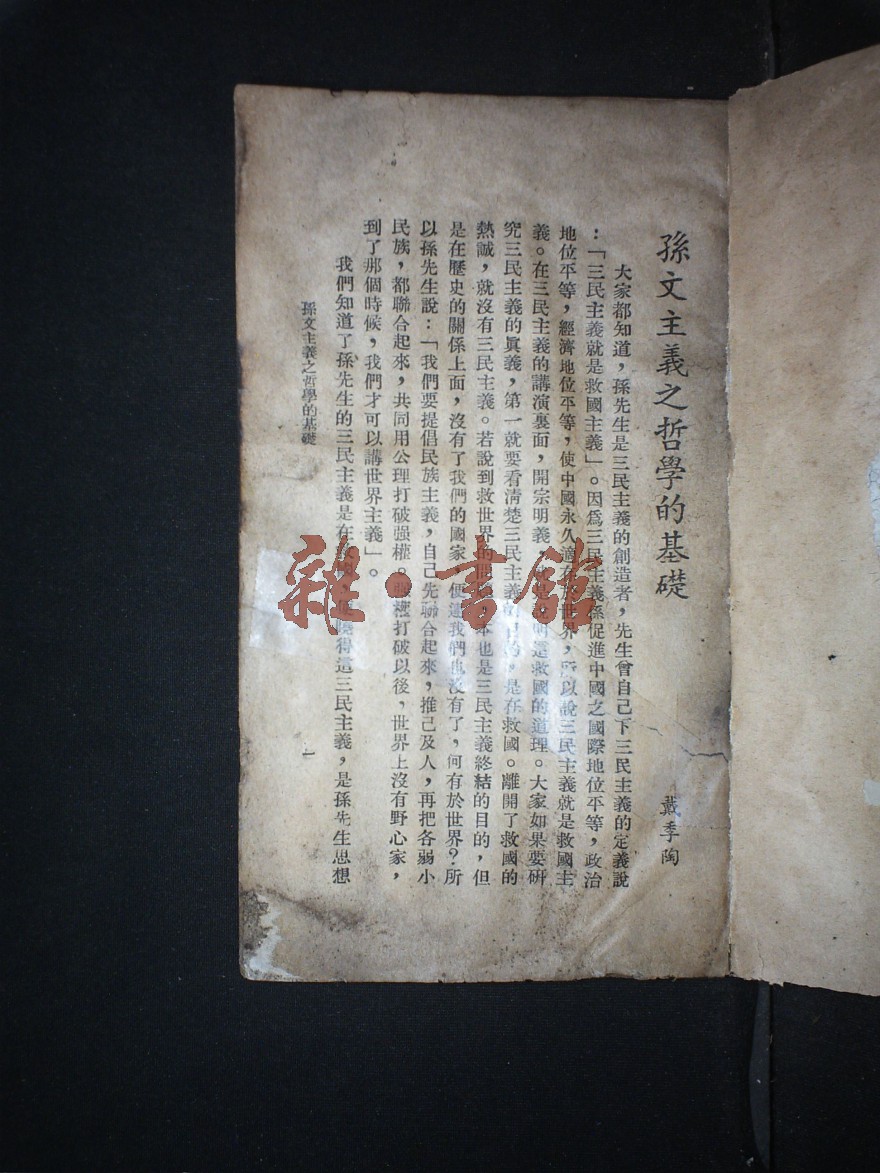 孫文主義之哲學的基礎
戴季陶
大家都知道，孫先生是三民主義的創造者，先生曾自己下三民主義的定義說
：「三民主義就是救國主義」。因爲三民主義係促進中國之國際地位平等，政治
地位平等，經濟地位平等，使中國永久適存於世界，所以說三民主義就是救國主
義。在三民主義的講演裏面，開宗明義，就是說明這救國的道理。大家如果要硏
究三民主義的眞義，第一就要看清楚三民主義的目的，是在救國。離開了救國的
熱誠，就沒有三民主義。若說到救世界的問題，本也是三民主義終結的目的，但
是在歷史的關係上面，沒有了我們的國家，便連我們也沒有了，何有於世界？所
以孫先生說：「我們要提倡民族主義，自己先聯合起來，推己及人，再把各弱小
民族，都聯合起來，共同用公理打破强權。强權打破以後，世界上沒有野心家，
到了那個時候，我們才可以講世界主義」。
我們知道了孫先生的三民主義是在救國，便曉得這三民主義，是孫先生思想
孫文主義之哲學的基礎
一
雜·書館